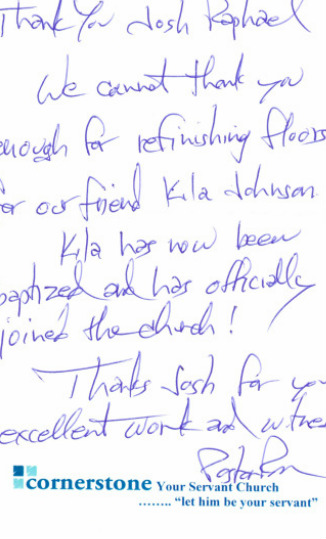 Thank You Josh Raphael
We cannot thank you
enough for refinishing floors
for our friend Kila Johnson
Kila has now been
baptized and has officially
joined the church!
Thanks Josh for you
excellent work and witnes
Pastor Ron
cornerstone Your Servant Church
........ "let him be your servant"